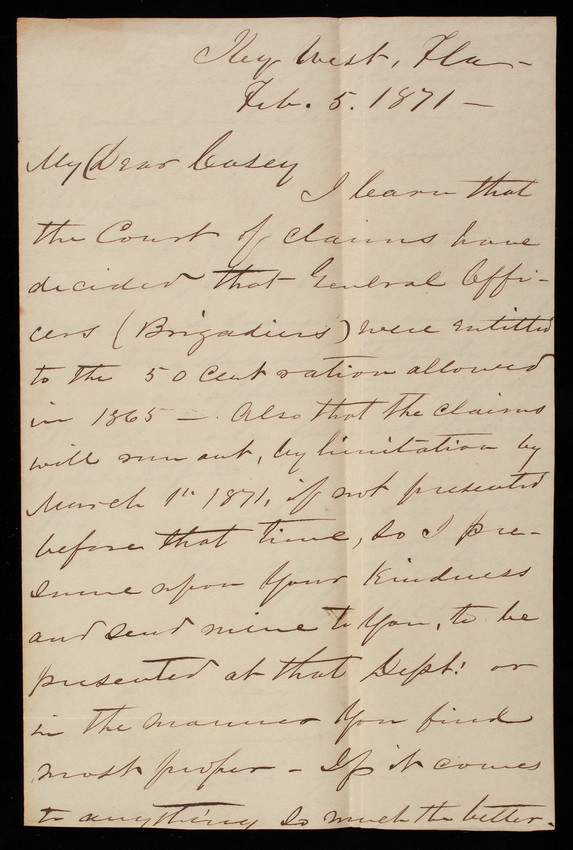 Key West, Fla -
Feb. 5. 1871 -
My Dear Casey
I learn that
the Court of Claims have
decided that General Offi-
cers (Brigadiers) were entitled
to the 50 cent ration allowed
in 1865 -. Also that the claims
will run out, by limitation by
March 1st 1871, if not presented
before that time, so I pre-
sume upon your kindness
and send mine to you, to be
presented at that Dept: or
in the manner you find
most proper - If it comes
to anything so much the better.